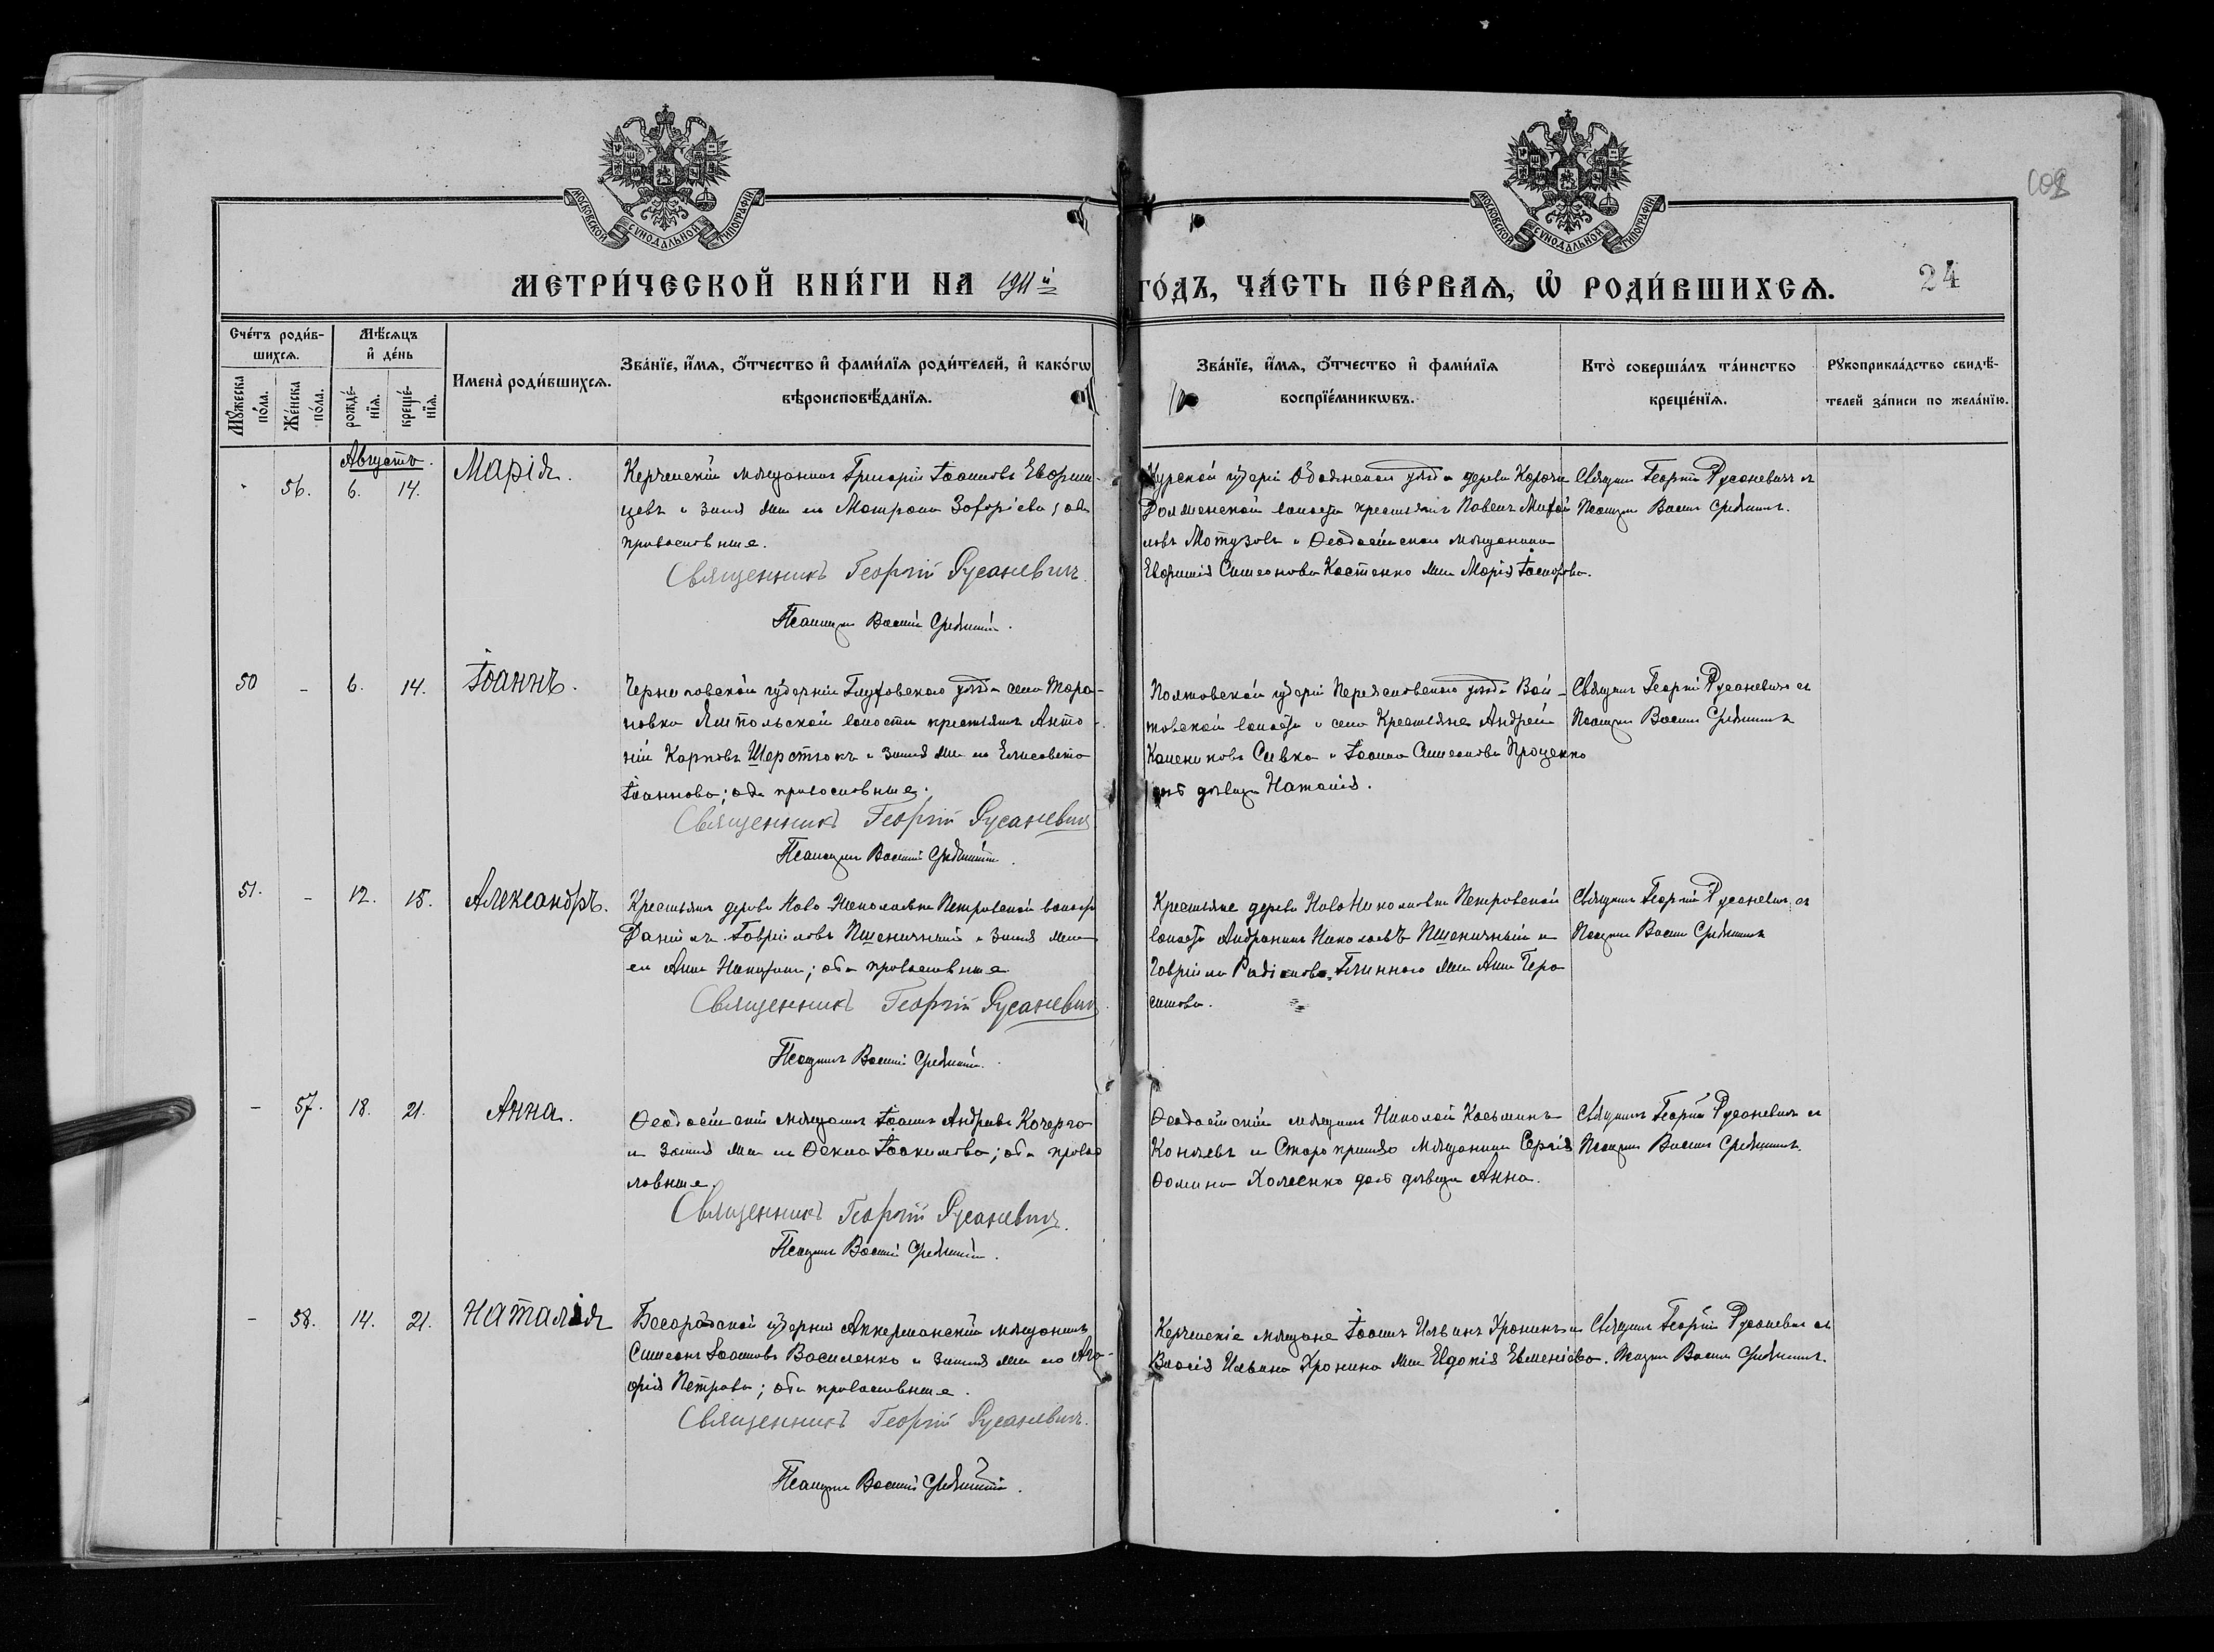 МОСКОВСКОЙ СУНОДАЛЬНОЙ ТИПОГРАФІИ
МОСКОВСКОЙ СУНОДАЛЬНОЙ ТИПОГРАФІИ
МЕТРИ́ЧЕСКОЙ КНИ́ГИ НА 1911й
ГО́ДЪ, ЧА́СТЬ ПЕ́РВАѦ, Ѡ РОДИ́ВШИХСѦ.
24
Сче́тъ роди́в-
шихсѧ.
Мꙋ́жеска
по́ла.
Же́нска
по́ла.
Мѣ́сѧцъ
и҆ де́нь
рожде́-
нїѧ.
креще́-
нїѧ.
Имена̀ роди́вшихсѧ.
Зва́нїе, и҆́мѧ, ѻ҆́тчество и҆ фами́лїѧ роди́телей, и҆ како́гѡ
вѣроисповѣ́данїѧ.
Зва́нїе, и҆́мѧ, ѻ҆́тчество и҆ фами́лїѧ
воспрїе́мникѡвъ.
Кто̀ соверша́лъ та́инство
креще́нїѧ.
Рꙋкоприкла́дство свидѣ́-
телей за́писи по жела́нїю.
Августъ.
56. 6. 14. Марія.
Керченскій мѣщанинъ Григорій Іоанновъ
и законная жена его Матрона оба
православные.
Священникъ Георгій Русаневичъ.
Псаломщикъ Василій
Курской губерніи Обоянскаго уѣзда деревни
волости крестьянинъ Павелъ
Мотузовъ и Ѳеодосійскаго мѣщанина
Евфимія Симеонова Костенко жена Марія
Священникъ Георгій Русаневичъ съ
Псаломщикомъ Василіемъ
50 - 6. 14. Іоаннъ.
Черниговской губерніи Глуховскаго уѣзда села Тара-
новка Ямпольской волости крестьянинъ Анто-
ній Карповъ Шерстюкъ и законная жена его Елисавета
Іоаннова; оба православные.
Священникъ Георгій Русаневичъ
Псаломщикъ Василій
Полтавской губерніи Переяславского уѣзда Вой-
товской волости и села Крестьяне Андрей
Сивка и Іоанна Симеонова Проценко
дочь дѣвица Наталія.
Священникъ Георгій Русаневичъ съ
Псаломщикомъ Василіемъ
51. - 12. 15. Александръ.
Крестьянинъ деревни Ново-Николаевки Петровской волости
Даніилъ Гавріиловъ Пшеничный и законная жена
его Анна Никитина; оба православные
Священникъ Георгій Русаневичъ
Псаломщикъ Василій
Крестьяне деревни Ново Николаевки Петровской
волости Николаевъ Пшеничный и
Гавріила Радіонова жена Анна Гера-
симова.
Священникъ Георгій Русаневичъ съ
Псаломщикомъ Василіемъ
- 57. 18. 21. Анна.
Ѳеодосійскій мѣщанинъ Іоаннъ Андреевъ Кочерга
и законная жена его Ѳекла Іоакимова; оба правос
лавные.
Священникъ Георгій Русаневичъ.
Псаломщикъ Василій
Ѳеодосійскій мѣщанинъ Николай Косьминъ
и мѣщанина Сергія
Ѳомина дочь дѣвица Анна.
Священникъ Георгій Русаневичъ съ
Псаломщикомъ Василіемъ
- 58. 14. 21. Наталія
Бессарабской губерніи Аккерманскій мѣщанинъ
Симеонъ Іоанновъ Василенко и законная жена его Ага-
фія Петрова; оба православные.
Священникъ Георгій Русаневичъ.
Псаломщикъ Василій
Керченскіе мѣщане Іоаннъ Ильинъ Хронинъ и
Власія Ильина Хронина жена Евдокія
Священникъ Георгій Русаневичъ съ
Псаломщикомъ Василіемъ